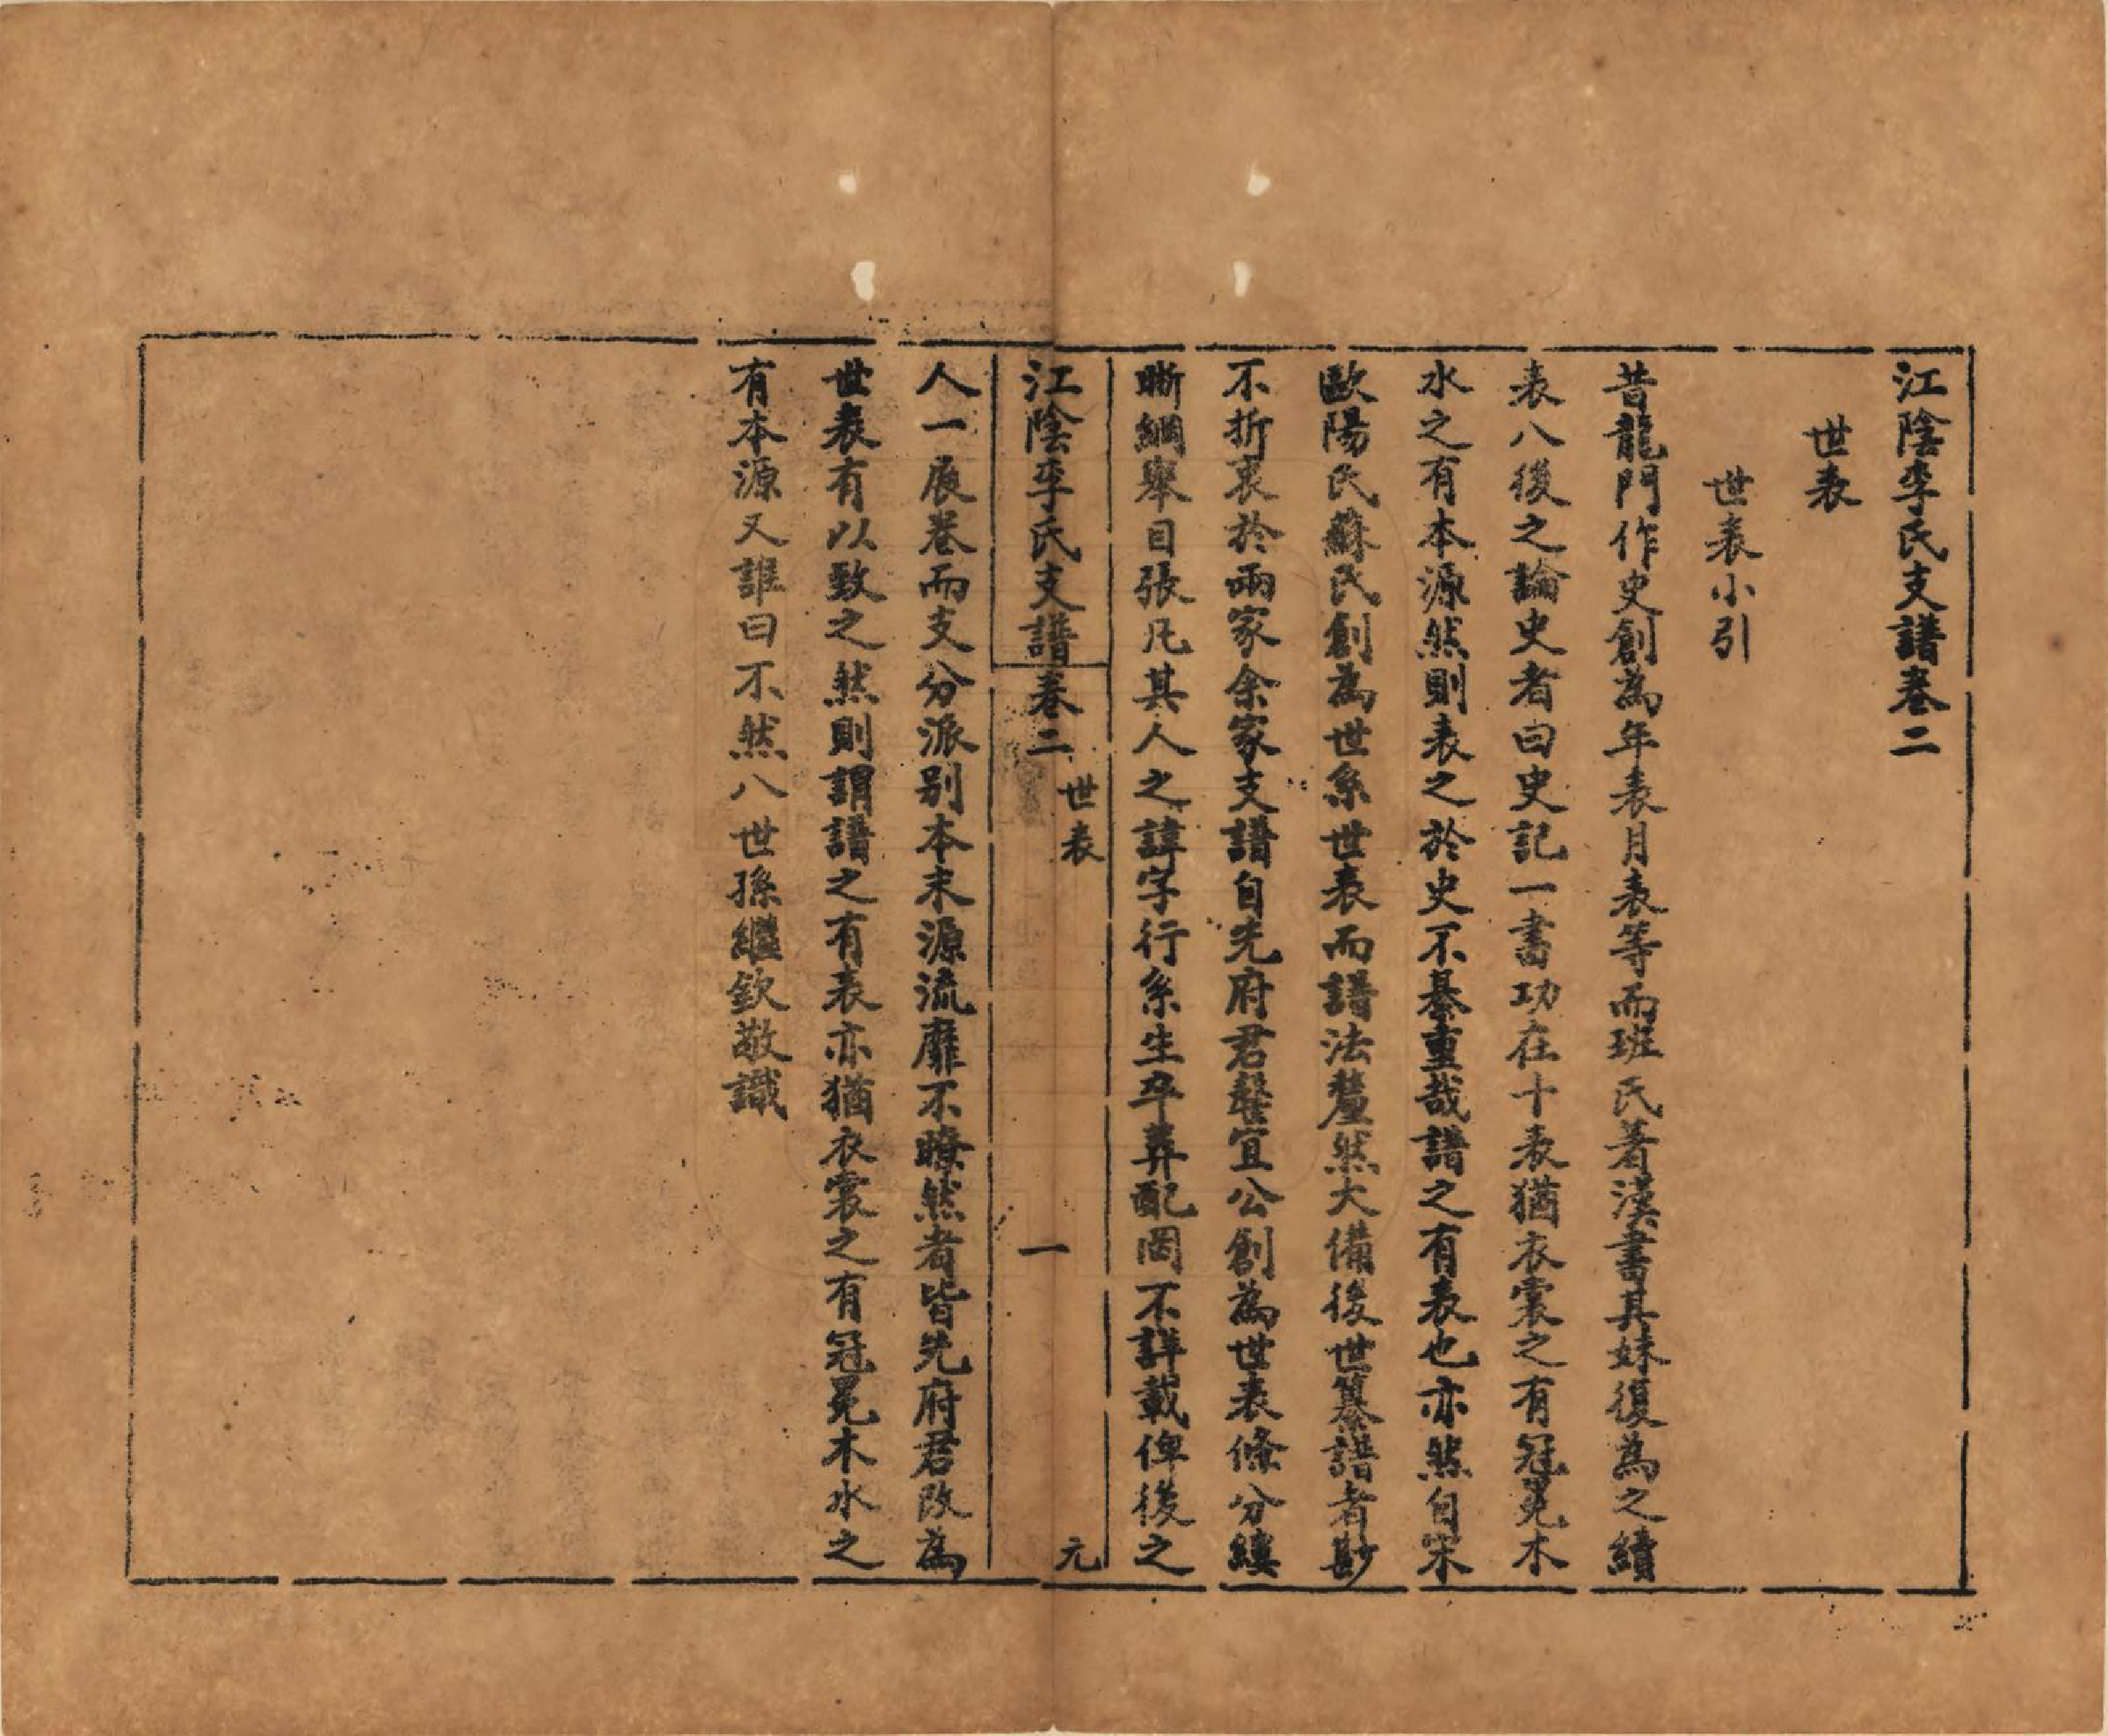 江陰李氏支譜卷二
世表
世表小引
昔龍門作史創為年表月表等而班氏著漢書其妹復為之續
表八後之論史者曰史記一書功在十表猶衣裳之有冠冕木
水之有本源然則表之於史不綦重哉譜之有表也亦然自宋
歐陽氏蘇氏創為世系世表而譜法釐然大備後世纂譜者尠
不折衷於兩家余家支譜自先府君馨宜公創為世表條分縷
晰綱舉目張凡其人之諱字行系生卒葬配罔不詳載俾後之
江陰李氏支譜卷二 世表 一 元
人一展卷而支分派別本末源流靡不瞭然者皆先府君改為
世表有以致之然則謂譜之有表亦猶衣裳之有冠冕木水之
有本源又誰曰不然八世孫繼欽敬識